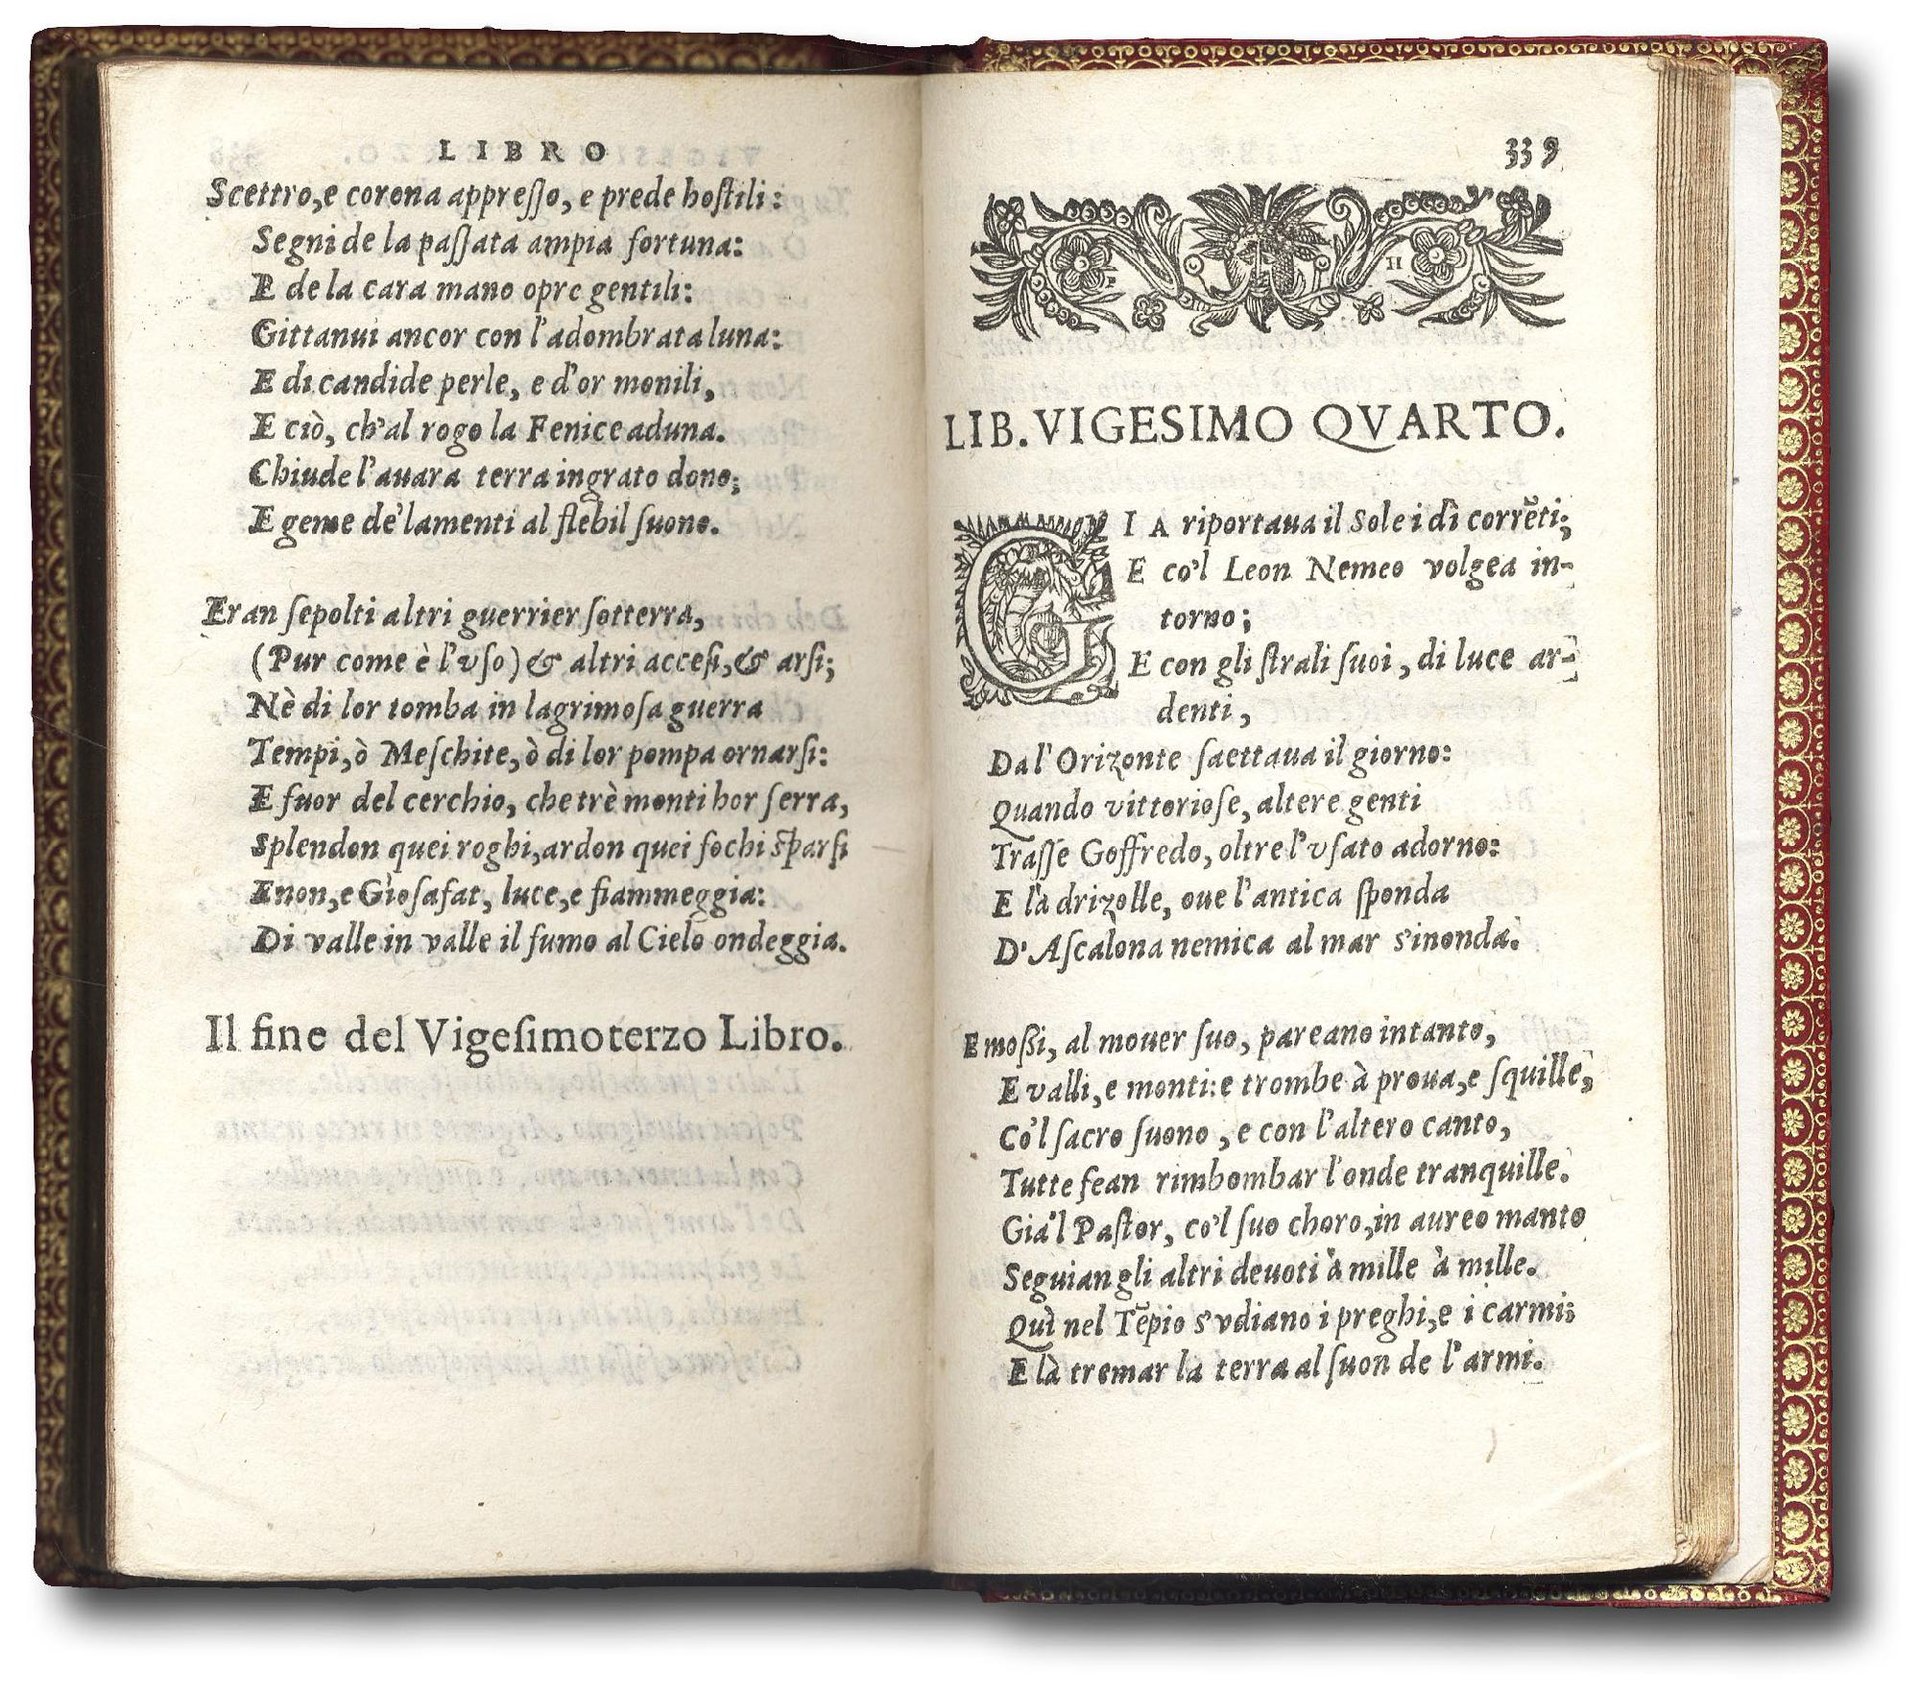 LIBRO
Scettro, e corona appreſſo, e prede hoſtili:
Segni de la paſſata ampia fortuna:
E de la cara mano opre gentili:
Gittanui ancor con l'adombrata luna:
E di candide perle, e d'or monili,
E ciò, ch'al rogo la Fenice aduna.
Chiude l'auara terra ingrato dono;
E geme de' lamenti al flebil ſuono.
Eran ſepolti altri guerrier ſotterra,
(Pur come è l'vſo) & altri acceſi, & arſi;
Nè di lor tomba in lagrimoſa guerra
Tempi, ò Meſchite, ò di lor pompa ornarſi:
E fuor del cerchio, che trè monti hor ſerra,
Splendon quei roghi, ardon quei fochi sparſi
Enon, e Gioſafat, luce, e fiammeggia:
Di valle in valle il fumo al Cielo ondeggia.
Il fine del Vigeſimoterzo Libro.
339
LIB. VIGESIMO QVARTO.
GIA riportaua il Sole i dì corrēti;
E co'l Leon Nemeo volgea in-
torno;
E con gli ſtrali ſuoi, di luce ar-
denti,
Da l'Orizonte ſaettaua il giorno:
Quando vittorioſe, altere genti
Traſſe Goffredo, oltre l'vſato adorno:
E là drizolle, oue l'antica ſponda
D'Aſcalona nemica al mar s'inonda.
E moßi, al mouer ſuo, pareano intanto,
E valli, e monti: e trombe à proua, e ſquille,
Co'l ſacro ſuono, e con l'altero canto,
Tutte fean rimbombar l'onde tranquille.
Già'l Paſtor, co'l ſuo choro, in aureo manto
Seguian gli altri deuoti à mille à mille.
Quì nel Tēpio s'vdiano i preghi, e i carmi;
E là tremar la terra al ſuon de l'armi.